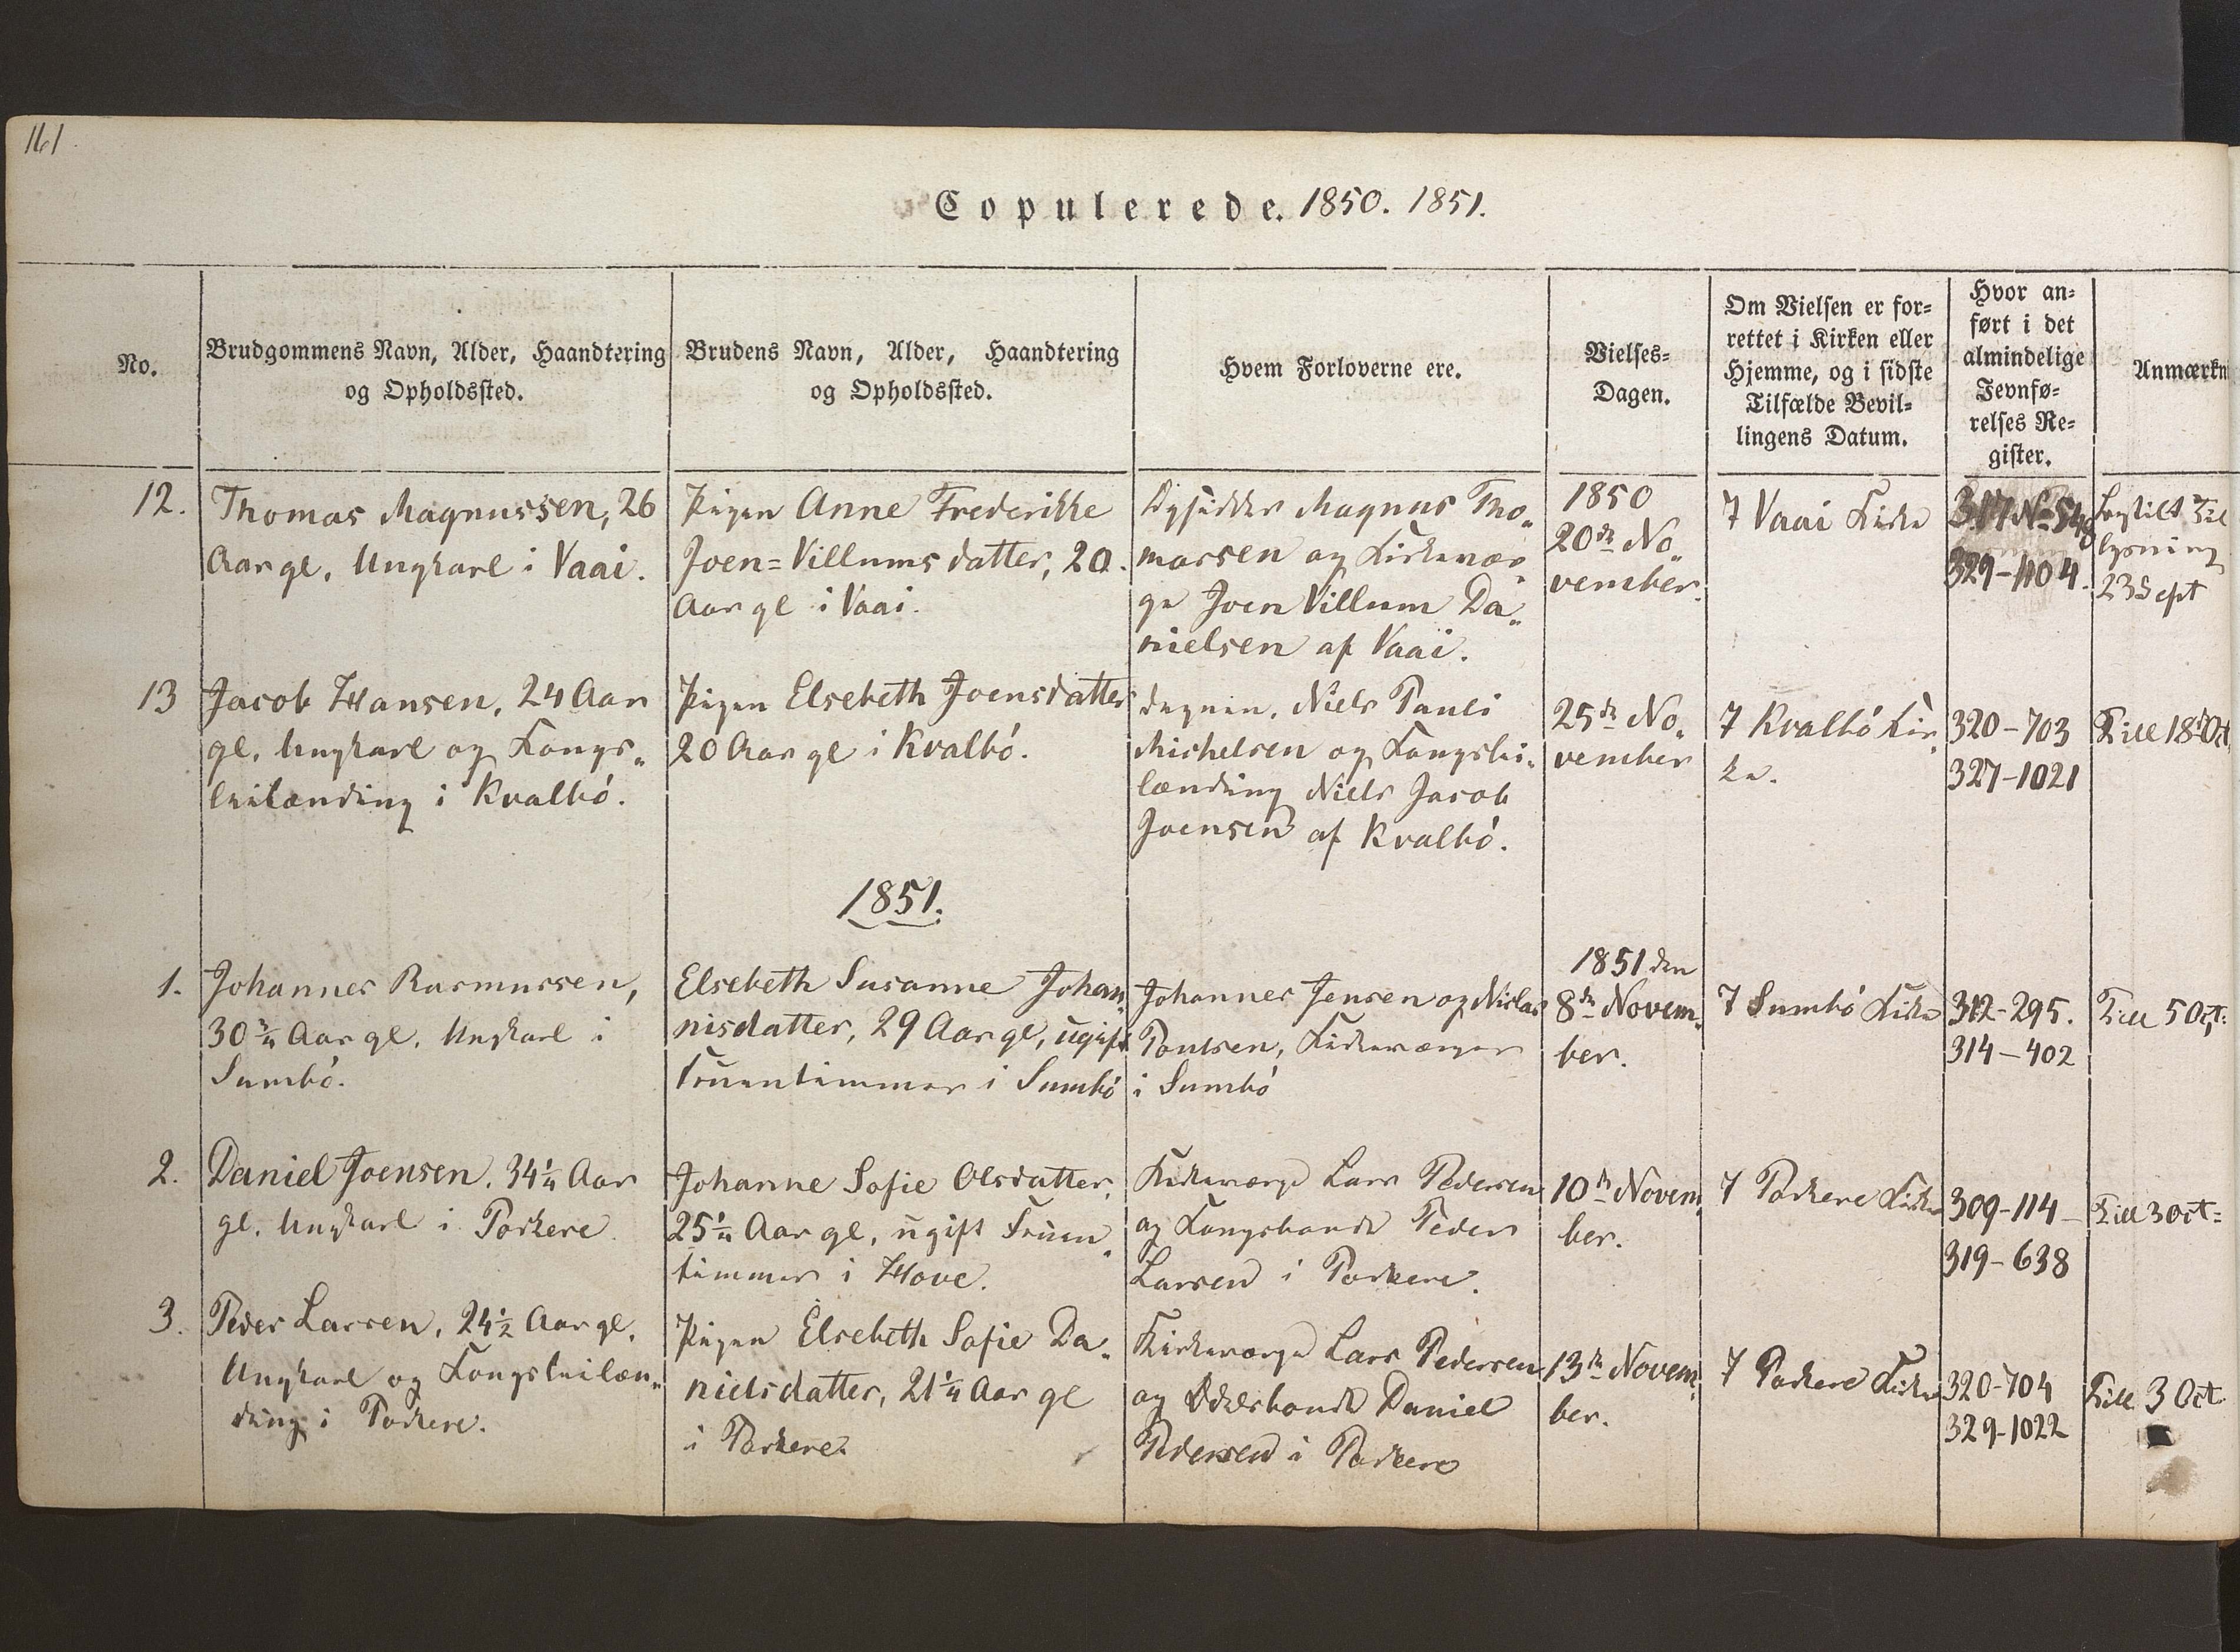 161.
Copulerede. 1850. 1851.
No.
Brudgommens Navn, Alder, Haandtering
og Opholdssted.
Brudens Navn, Alder, Haandtering
og Opholdssted.
Hvem Forloverne ere.
Vielses-
Dagen.
Om Vielsen er for-
rettet i Kirken eller
Hjemme, og i sidste
Tilfælde Bevil-
lingens Datum.
Hvor an-
ført i det
almindelige
Jevnfø-
relses Re-
gister.
Anmærkn
12.
Thomas Magnussen, 26
Aar gl. Ungkarl i Vaai.
Pigen Anne Frederikke
Joen=Villumsdatter, 20
Aar gl i Vaai.
Magnus Tho„
massen og Kirkevær„
ge Joen Villum Da„
nielsen af Vaai.
1850
20de No„
vember.
I Vaai Kirke
317 No 548
329-1104.
Lovbilt Til
lysning
23 Sept
13
Jacob Hansen, 24 Aar
gl. Ungkarl og Kongs„
leilænding i Kvalbó.
Pigen Elsebeth Joensdatter
20 Aar gl i Kvalbó.
Degnen, Niels Pauli
Michelsen og Kongslei„
lænding Niels Jacob
Joensen af Kvalbó.
25de No„
vember
I Kvalbó Kir„
ke.
320-703
327-1021
Till 18 Oct
1851.
1.
Johannes Rasmussen,
30 3/4 Aar gl. Ungkarl i
Sumbó.
Elsebeth Susanne Johan„
nisdatter, 29 Aar gl, ugift
Fruentimmer i Sumbó
Johannes Jensen og Niclas
Poulsen, Kirkeværger
i Sumbó
1851 den
8de Novem„
ber.
I Sumbó Kirke
312-295.
314-402
Till 5 Oct:
2.
Daniel Joensen, 34 1/4 Aar
gl. Ungkarl i Porkere
Johanne Sofie Olsdatter,
25 1/4 Aar gl, ugift Fruen„
timmer i Hove.
Kirkeværge Lars Pedersen
og Kongsbonde Peder
Larsen i Porkere.
10de Novem„
ber.
I Porkere Kirke
309-114-
319-638
Till 3 Oct=
3.
Peder Larsen, 24 1/2 Aar gl.
Ungkarl og Kongsleilæn„
ding i Porkere.
Pigen Elsebeth Sofie Da„
nielsdatter, 21 1/4 Aar gl
i Porkere.
Kirkeværge Lars Pedersen
og Odelsbonde Daniel
Pedersen i Porkere
13de Novem„
ber.
I Porkere Kirke
320-704
329-1022
Till 3 Oct